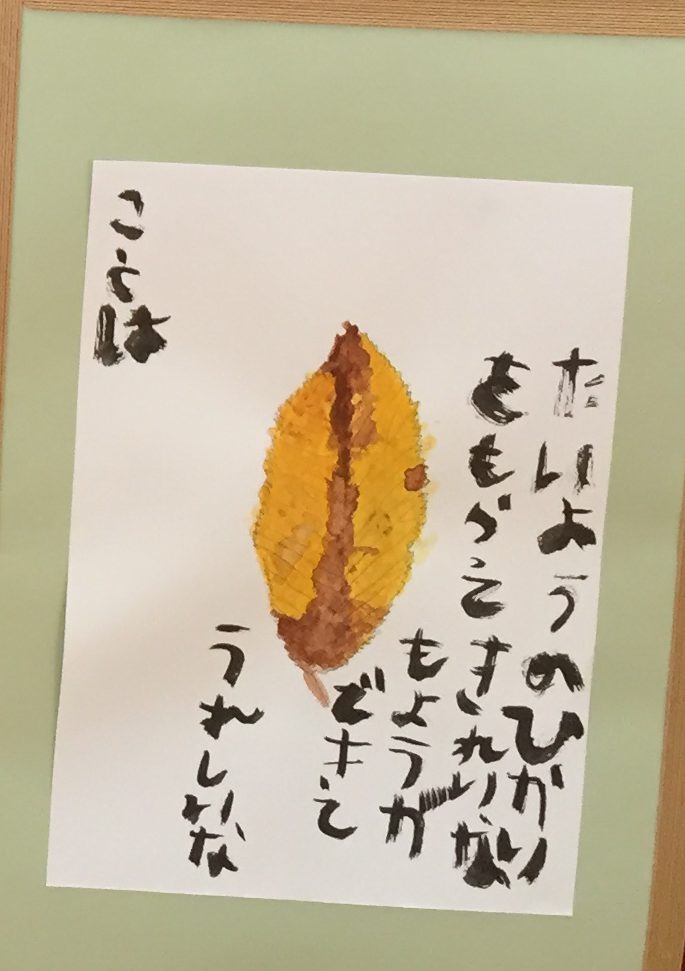 たいようのひかり
をもらってきれいな
もようが
できて
うれしいな
こうは